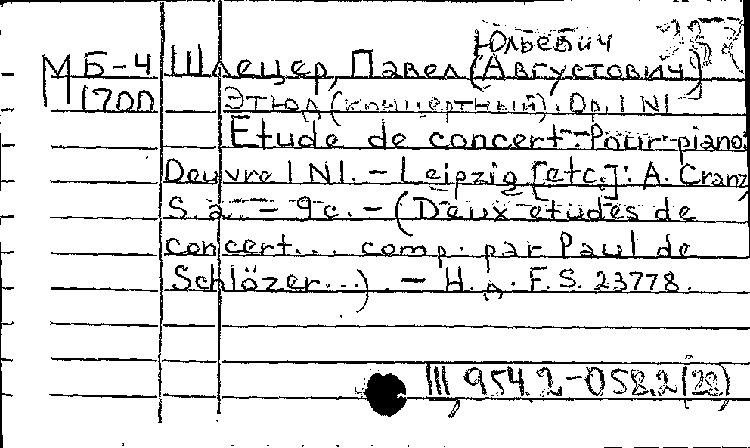 Юльевич
М Б-4 Шлецер, Павел (Августович)
1700 Этюд (концертный). Op. 1 N1
Etude de concert. Pour piano.
Oeuvre 1 N1. - Leipzig [etc.]: A. Cranz,
S. a. - 9 c. - (Deux etudes de
concert... comp. par Paul de
Schlözer...). - Н. д. F. S. 23778.
III, 954.2-058.2 (28)